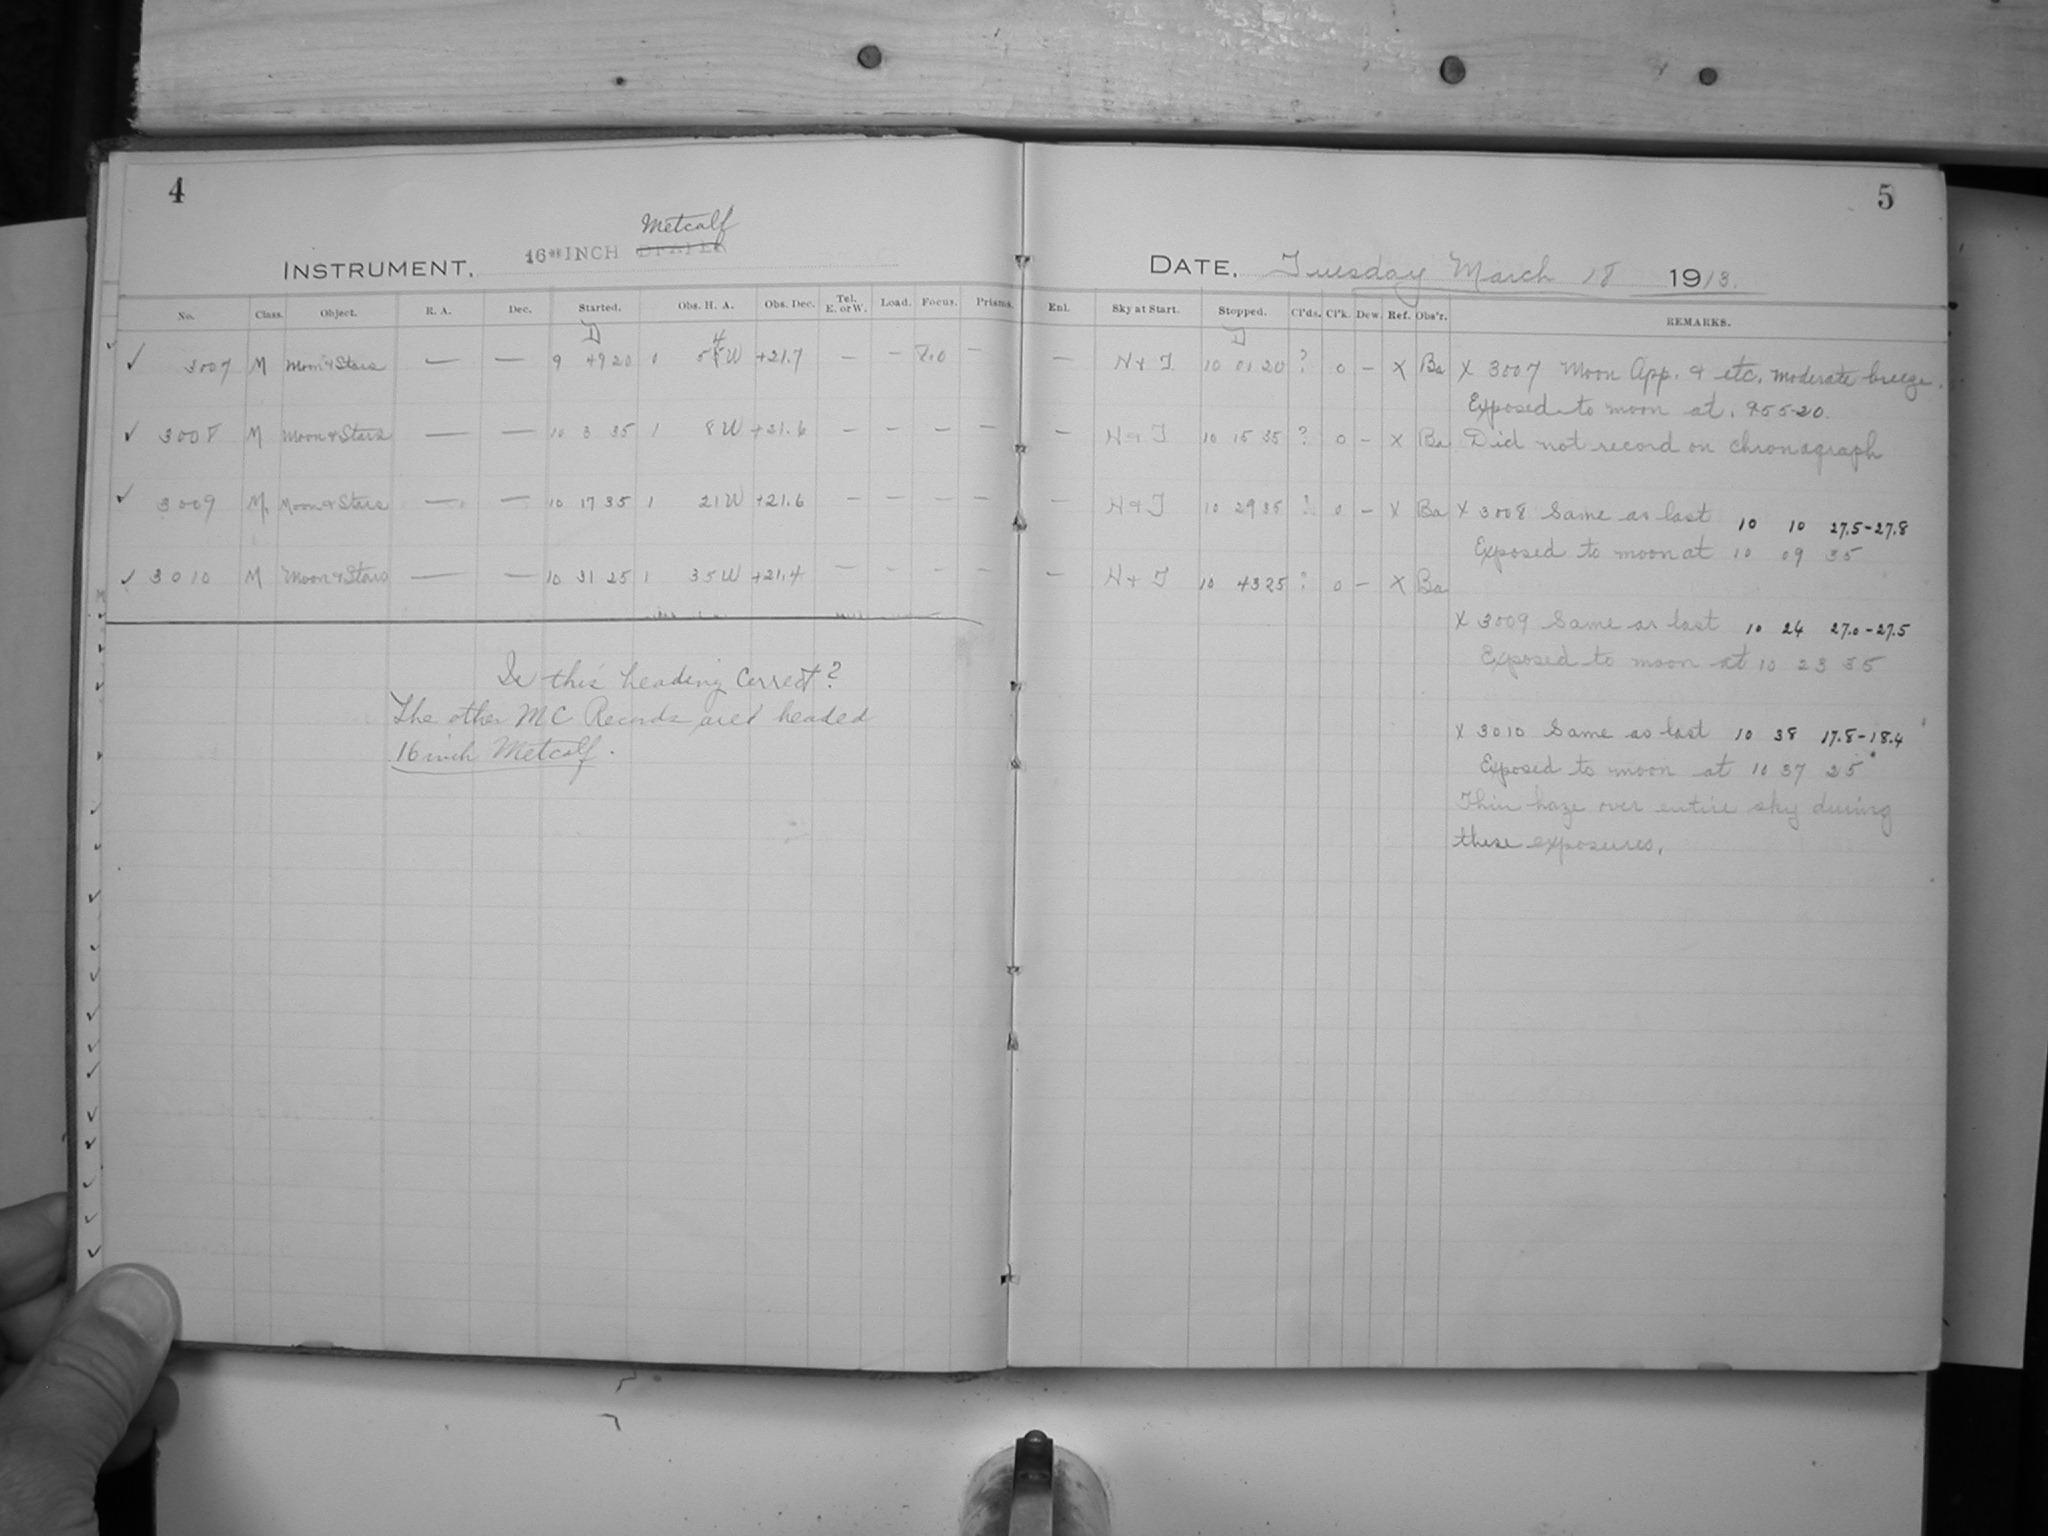 4
Metcalf
INSTRUMENT, 16 INCH DRAPER
No. Class. Object. R. A. Dec. Started. Obs. H. A. Obs. Dec. Tel. E. or W. Load. Focus. Prisms.
D 4
✓ 3007 M Moon & Stars — — 9 49 20 0 55 W +21.7 — — 8.0 —
✓ 3008 M Moon & Stars — — 10 3 35 1 8 W +21.6 — — — —
✓ 3009 M. Moon & Stars — — 10 17 35 1 21 W +21.6 — — — —
✓ 3010 M Moon & Stars — — 10 31 25 1 35 W +21.4 — — — —
Is this heading correct?
The other MC Records are headed
16 inch Metcalf.
5
DATE, Tuesday March 18 1913.
Enl. Sky at Start. Stopped. Cl'ds. Cl'k. Dew. Ref. Obs'r. REMARKS.
D
— H & T 10 01 20 ? 0 — X Ba X 3007 Moon App. & etc. moderate breeze.
Exposed to moon at. 9 55 20.
— H & T 10 15 35 ? 0 — X Ba Did not record on chronagraph
— H & T 10 29 35 ? 0 — X Ba X 3008 Same as last 10 10 27.5-27.8
Exposed to moon at 10 09 35
— H & T 10 43 25 ? 0 — X Ba
X 3009 Same as last 10 24 27.0-27.5
Exposed to moon at 10 23 35
X 3010 Same as last 10 38 17.8-18.4
Exposed to moon at 10 37 25
Thin haze over entire sky during
these exposures.